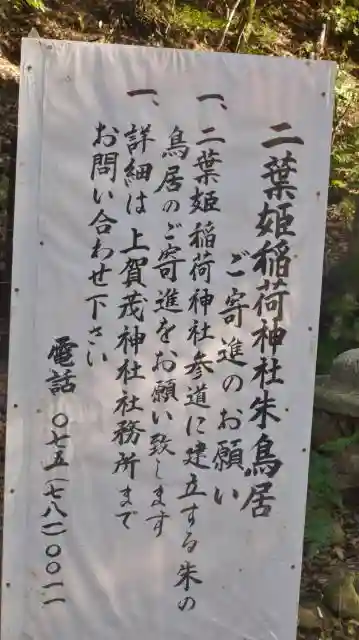 二葉姫稲荷神社朱鳥居
ご寄進のお願い
一、二葉姫稲荷神社参道に建立する朱の
鳥居のご寄進をお願い致します
一、詳細は上賀茂神社社務所まで
お問い合わせ下さい
電話 〇七五(七八一)〇〇一一